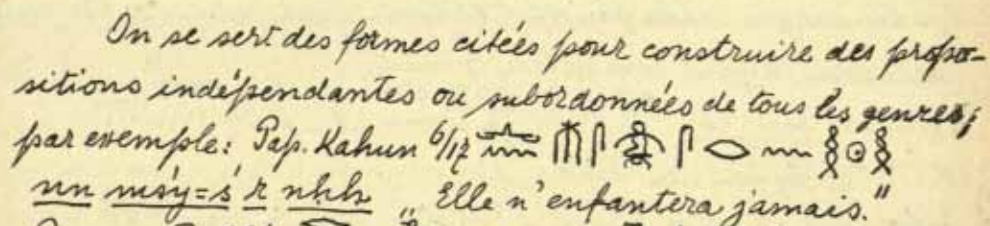 On se sert des formes citées pour construire des propo-
sitions indépendantes ou subordonnées de tous les genres;
par exemple: Pap. Kahun 6/17 𓂜𓈖 𓄟𓋴𓁒𓋴𓂋𓈖𓎛𓇳𓎛
nn mśy=ś r nhh „Elle n'enfantera jamais."